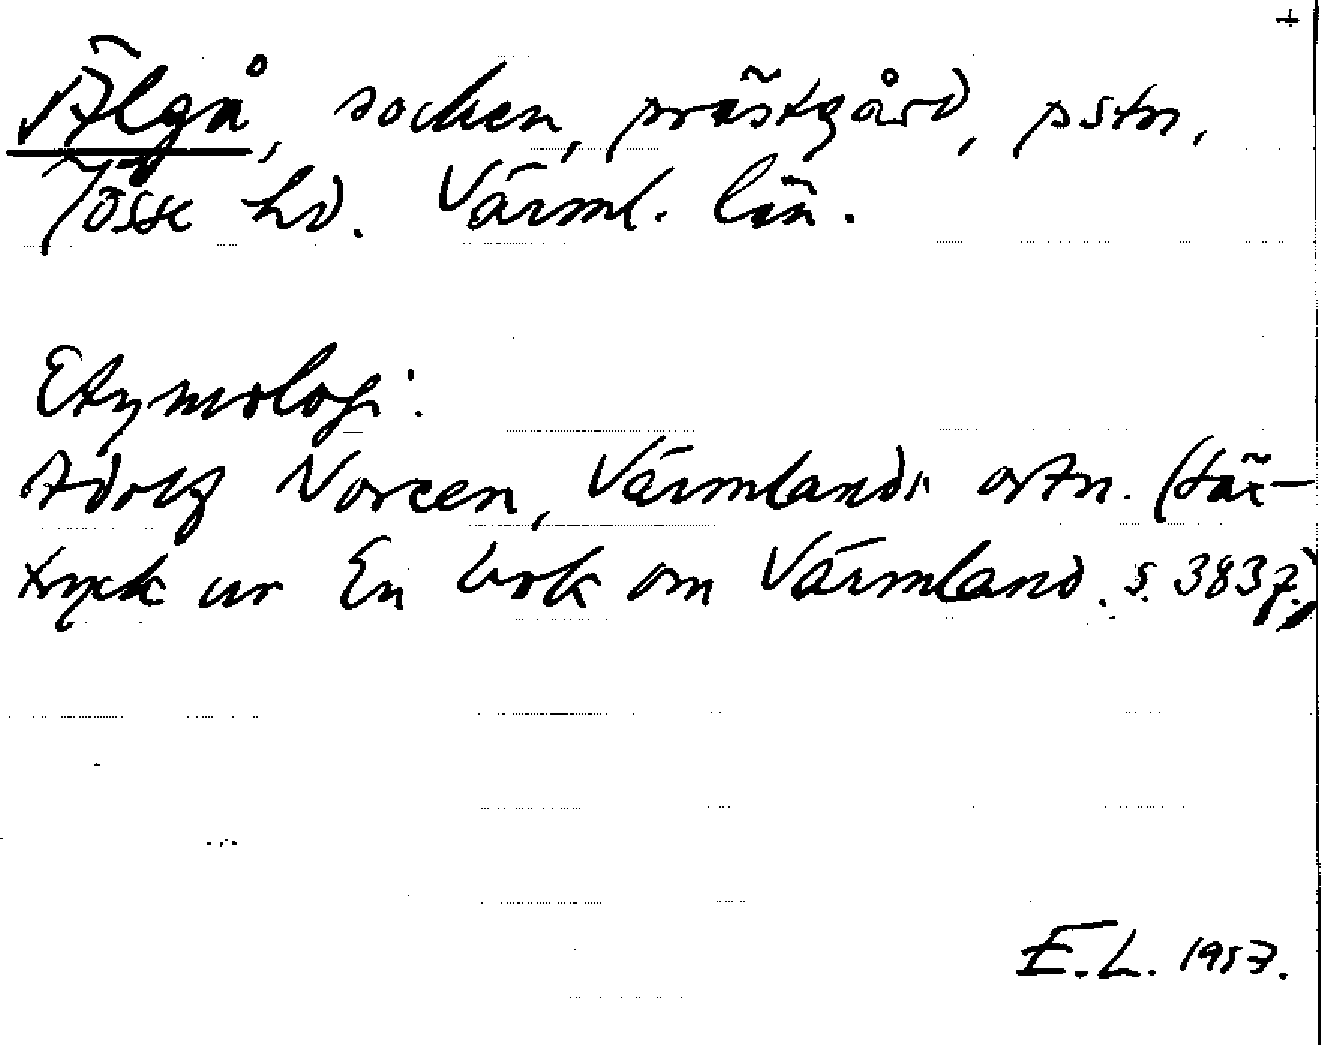 +
Älgå, socken, prästgård, pstn,
Jösse hd. Värml. län.
Etymologi:
Adolf Noreen, Värmlands ortn. (sär-
tryck ur En bok om Värmland. s. 383 f.)
E.L. 1957.